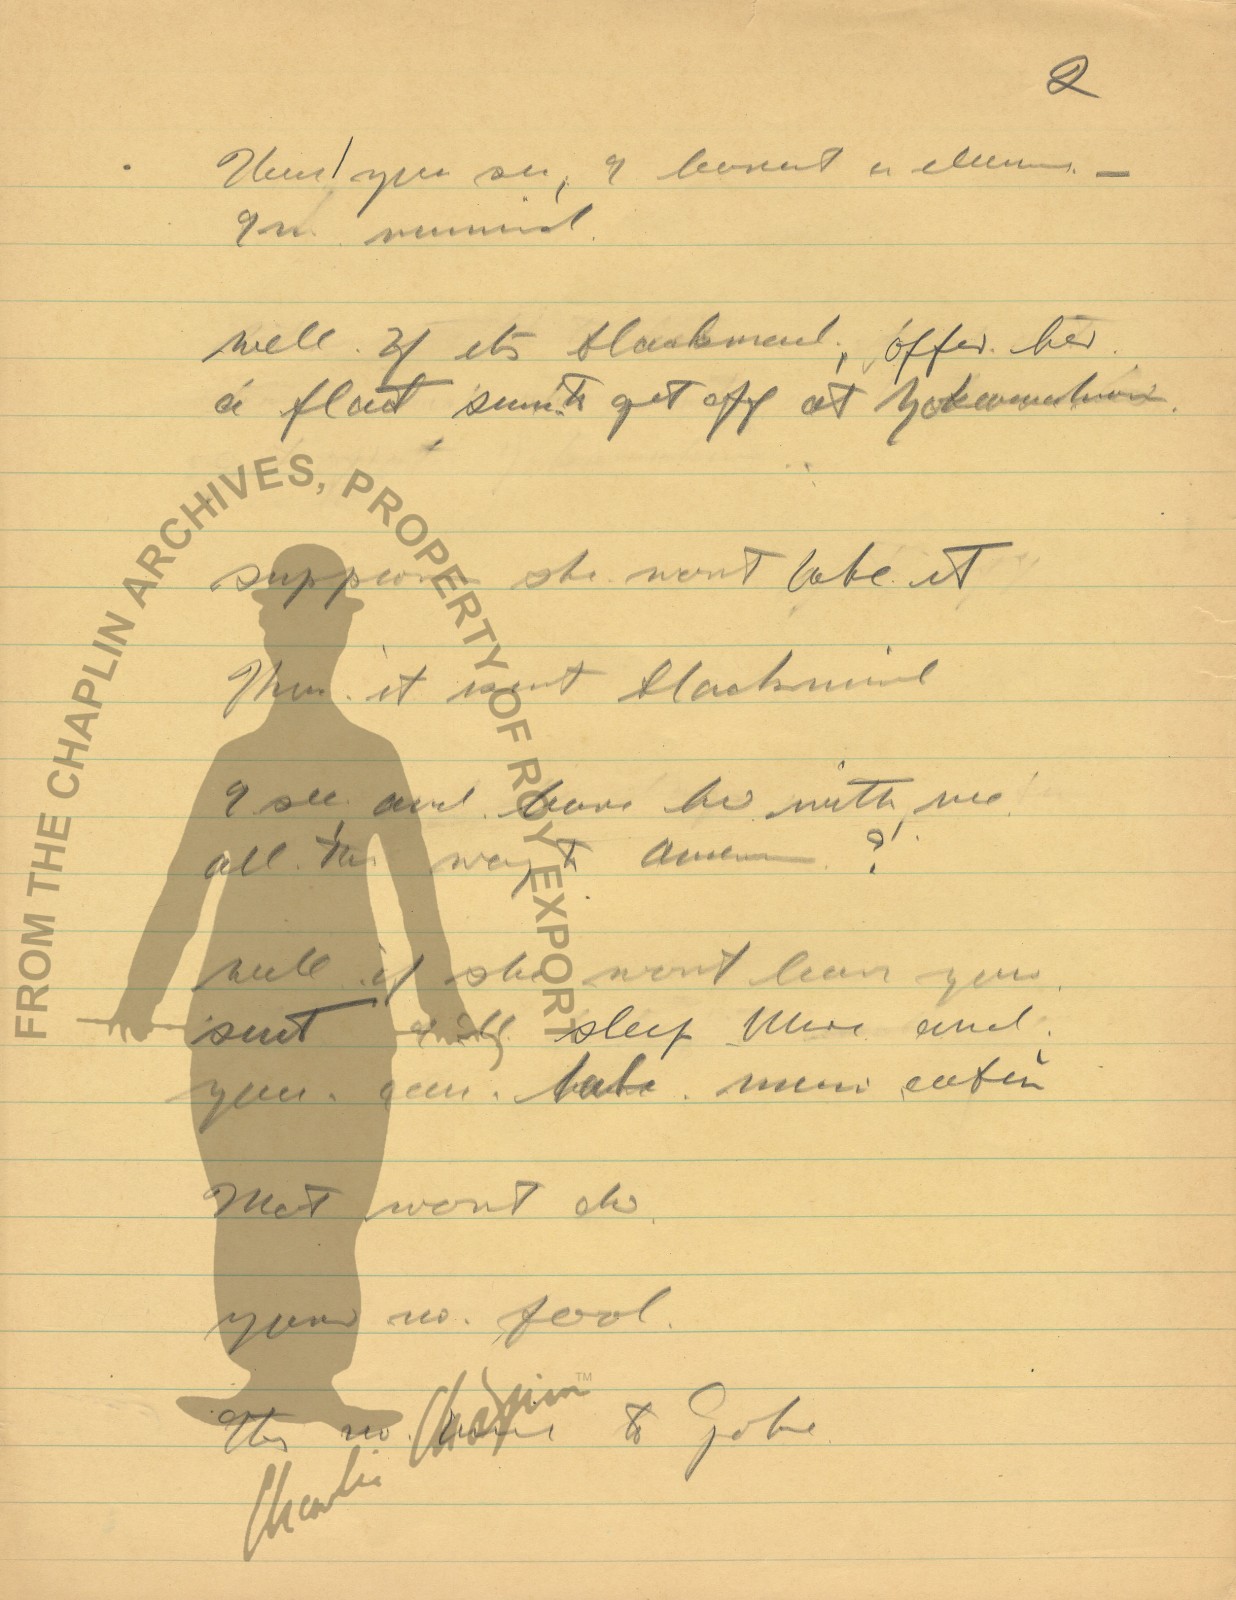 2
Then you see, I havent a chance. —
I'm ruined.
well. If its blackmail, offer her.
a float sum to get off at Yokohama.
suppose she wont take it
Then it isnt blackmail
I see and have her with me
all the way to America ?
well if she wont leave your
suit I'll sleep there and
you can. take mine
That wont do.
your no. fool.
This no time to joke
FROM THE CHAPLIN ARCHIVES, PROPERTY OF ROY EXPORT
Charlie Chaplin™